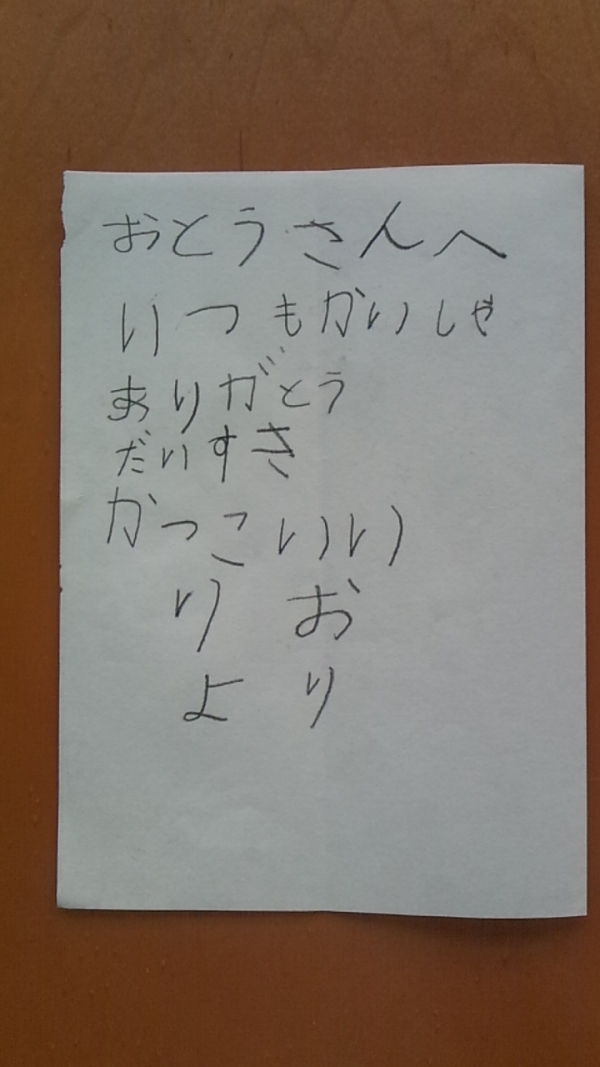 おとうさんへ
いつもかいしゃ
ありがとう
だいすき
かっこいい
りお
より